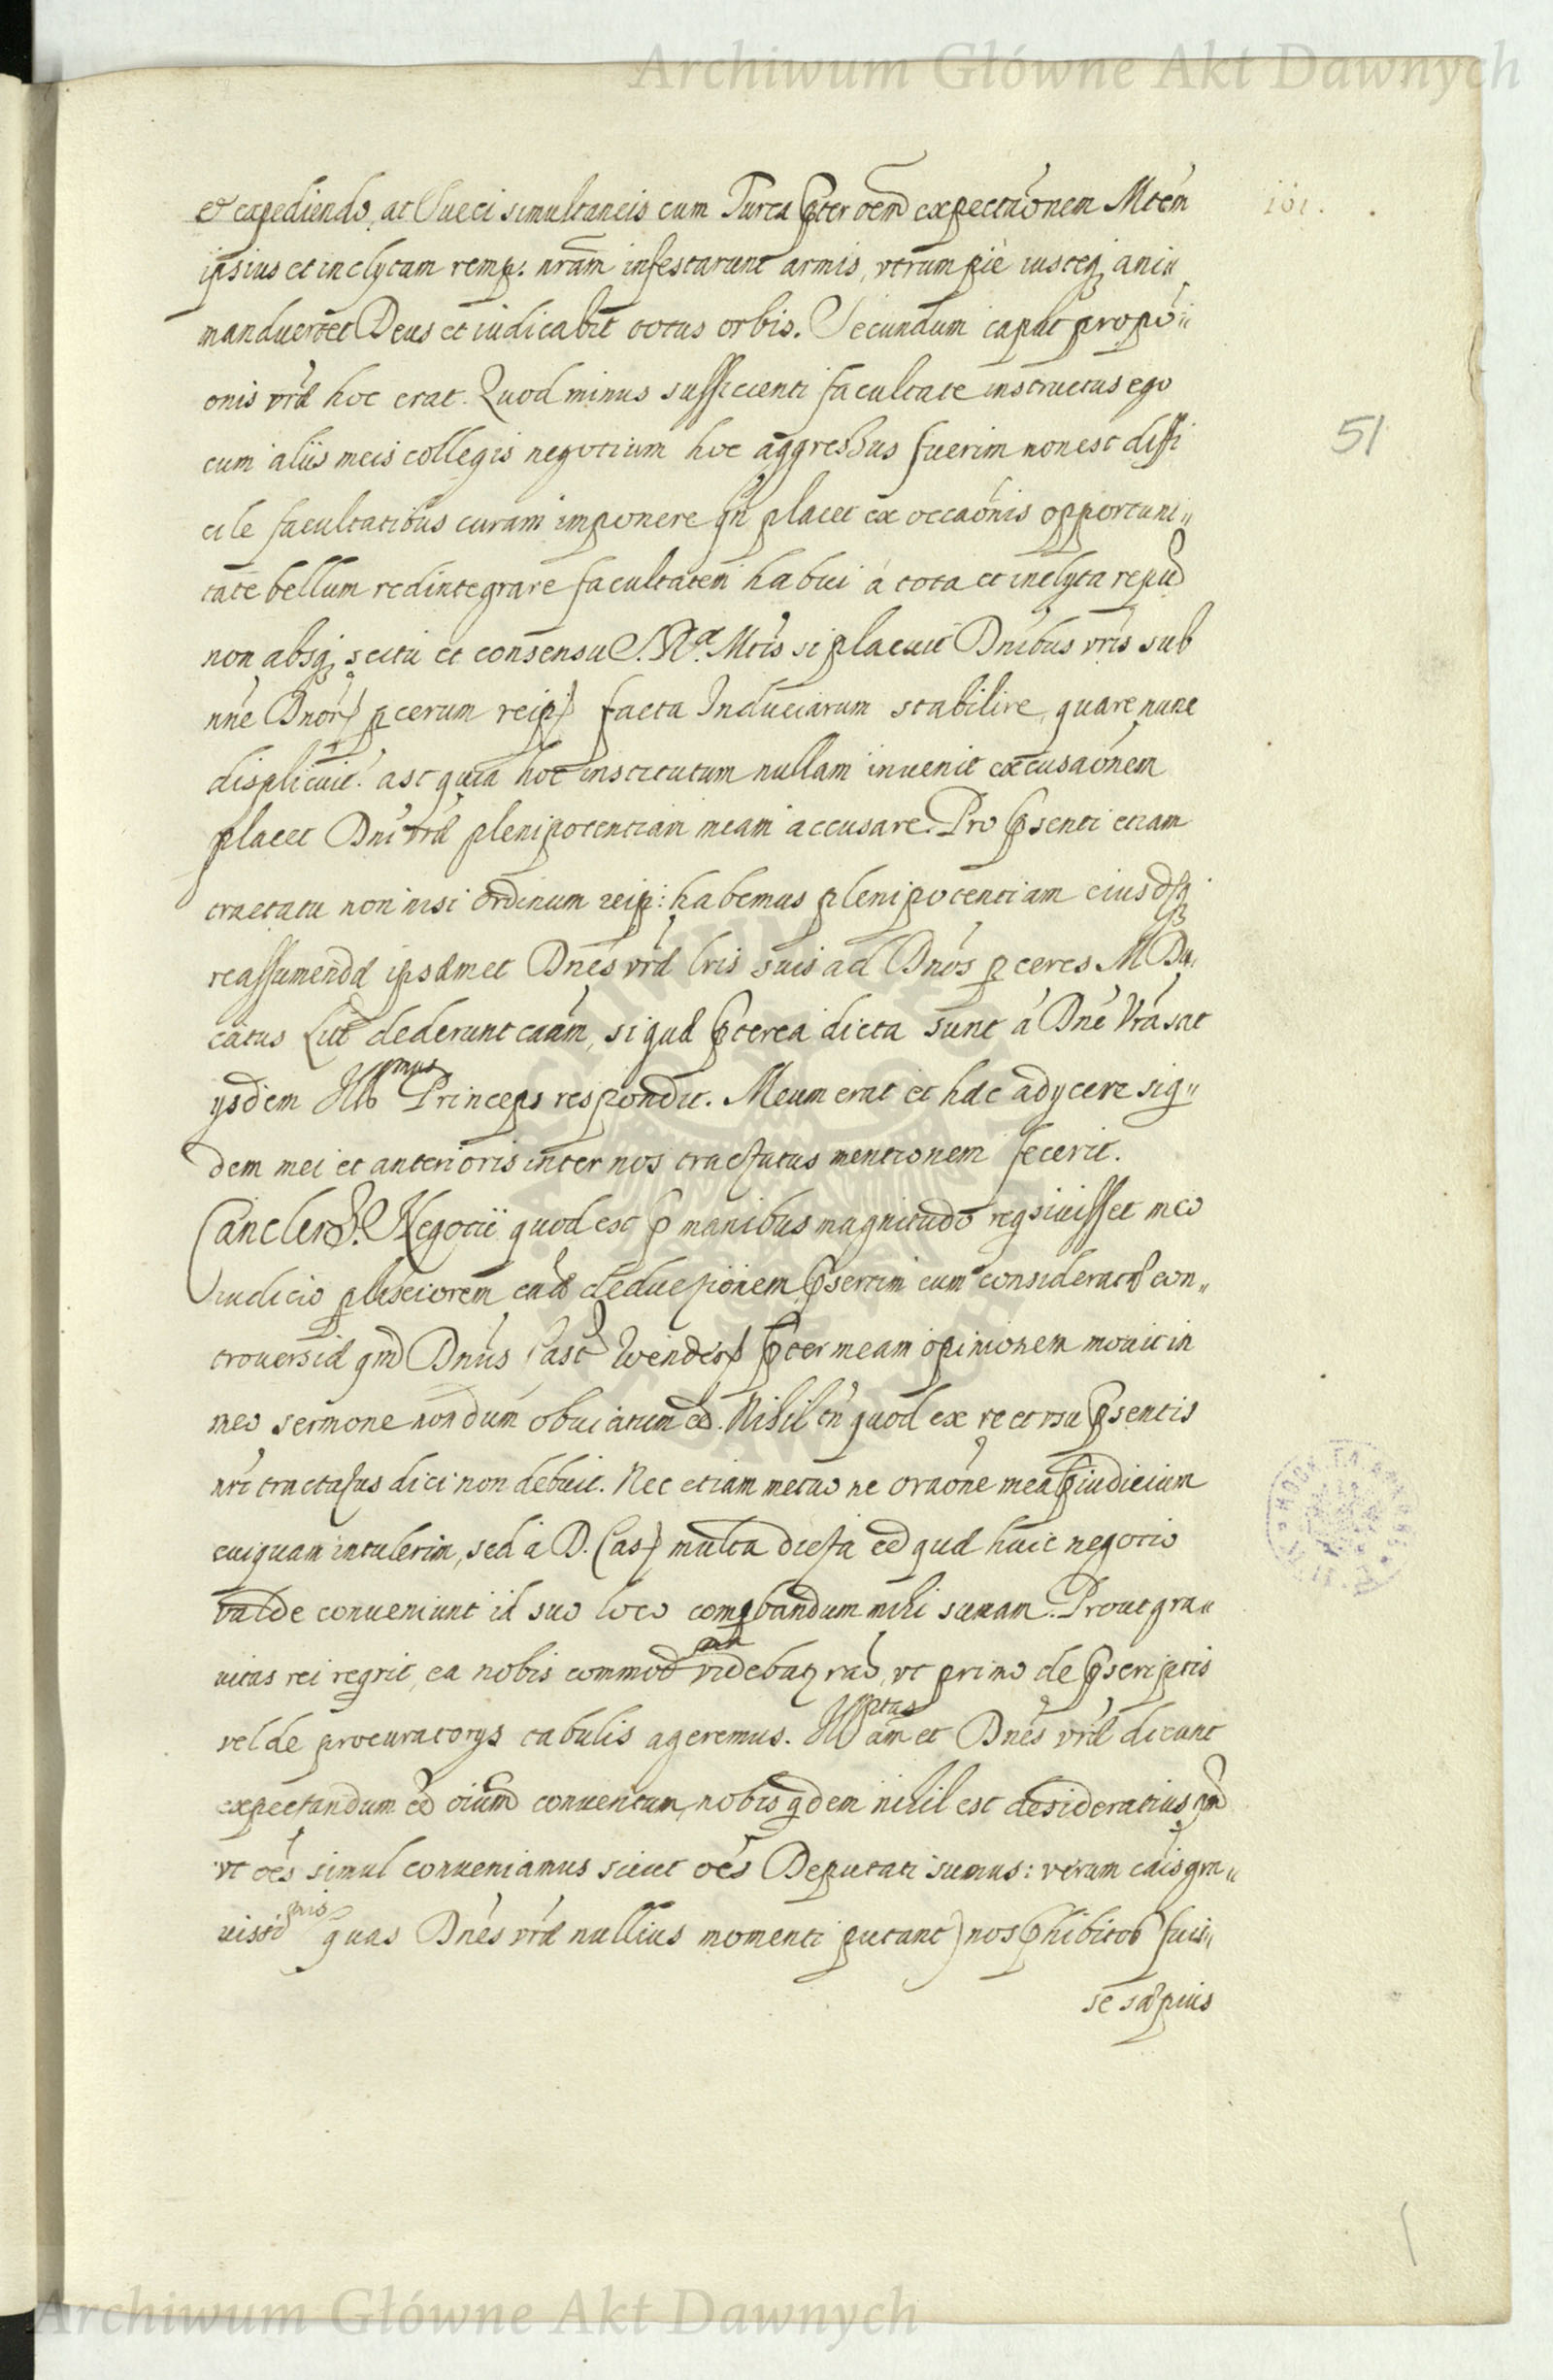 Archiwum Główne Akt Dawnych
et expediendo, at Sueci simultaneis cum Turca pter oem expectaonem Mtem
101.
ipsius et inclytam remp: nram infestarunt armis, vtrum pie iusteq ani„
manduertet Deus et iudicabit totus orbis. Secundum caput propo„
onis vrae hoc erat. Quod minus sufficienti facultate instructus ego
cum aliis meis collegis negotium hoc aggressus fuerim non est diffi
51
cile facultatibus curam imponere qn placet ex occaonis opportuni„
tate bellum redintegrare facultatem habui à tota et inclyta repub
non absq scitu et consensu S. Rae Mtis si placuit Dnibus vris sub
nne Dnor pcerum reip facta Induciarum stabilire, quare nunc
displicuit? ast quia hoc institutum nullam inuenit excusaonem
placet Dni vrae plenipotentiam meam accusare. Pro psenti etiam
tractatu non nisi ordinum reip: habemus plenipotentiam eiusdq
reassumendae ipsaemet Dnes vrae lris suis ad Dnos pceres M Du„
catus Litt dederunt caam, si quae pterea dicta sunt à Dne Vra sat
ysdem Illmus Princeps respondit. Meum erat et haec adycere siq„
dem mei et anterioris inter nos tractatus mentionem fecerit.
Cancler S. Negotii quod est p manibus magnitudo reqsiuisset meo
iudicio plixiorem eius deductionem, psertim cum consideratae con„
trouersiae qm Dnus Cast Wender pter meam opinionem mouit in
meo sermone nondum obuiatum est. Nihil tn quod ex re et vsu psentis
nri tractatus dici non debuit. Nec etiam metuo ne oraone mea piudicium
cuiquam intulerim, sed à D. Cas multa dicta ed quae huic negotio
valde conueniunt id suo loco compbandum mihi sumam. Prout gra„
uitas rei reqrit, ea nobis commod videbat rao, vt primo de pscriptis
vel de procuratorys tabulis ageremus. Illptas am et Dnes vrae dicunt
expectandum ee oium conuentum, nobis qdem nihil est desideratius qm
vt oes simul conueniamus sicut oes Deputati sumus: verum cais gra„
uissimis quas Dnes vrae nullius momenti putant) nos phibitos fuis„
se saepius
Archiwum Główne Akt Dawnych